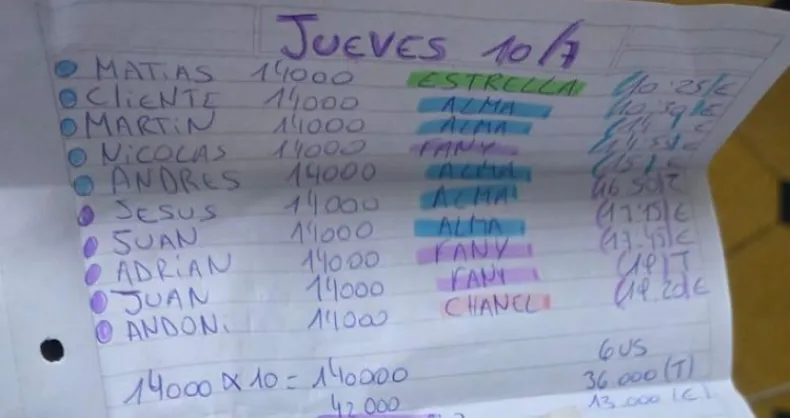 JUEVES 10/7
MATIAS 14000 ESTRELLA (10:25)E
CLIENTE 14000 ALMA
MARTIN 14000 ALMA
NICOLAS 14000 FANY
ANDRES 14000 ALMA
JESUS 14000 ALMA (16 50)T
JUAN 14000 ALMA (17.15)E
ADRIAN 14000 FANY (17.45)E
JUAN 14000 FANY (19)T
ANDONI 14000 CHANEL (19.20)E
14000 X 10 = 140000 6US
42000 36.000 (T)
13.000 (E)